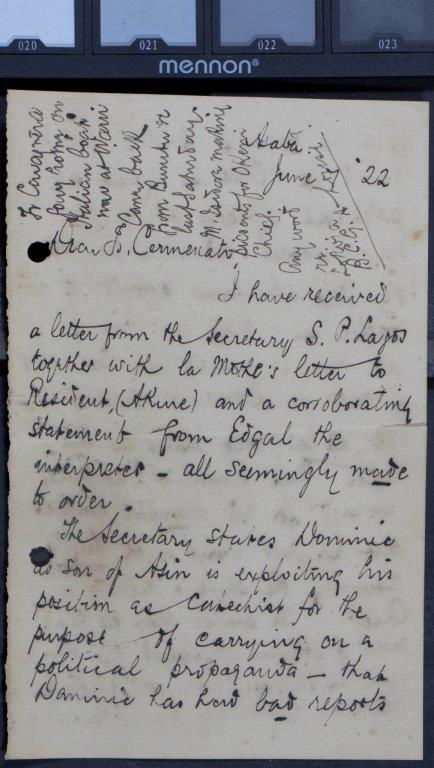 020 021 022 023
mennon®
Fr Cavagnera
going home on
Italian boat
now at Warri
Came back
from Burutu
last Saturday.
M. Isidore making
for Okeni
Chief.
Any word
Asaba
June '22
Dear Fr. Cermenati
I have received
a letter from the Secretary S. P. Lagos
together with la Mothe's letter to
Resident, (Akure) and a corroborating
statement from Edgal the
interpreter - all seemingly made
to order.
The Secretary states Dominic
as son of Asin is exploiting his
position as Catechist for the
purpose of carrying on a
political propaganda - that
Dominic has had bad reports